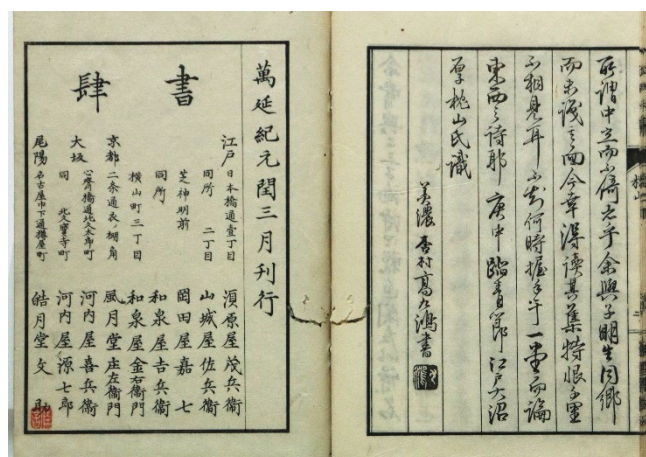 所謂中立而不倚者乎余與子明生同郷
而未識其面今幸得讀其集特恨千里
不相見耳不知何時握手于一堂而論
東西之詩耶 庚申踏青節 江戸大沼
厚枕山氏識
美濃 杏村高九鴻書
萬延紀元閏三月刊行
書肆
江戸 日本橋通壹丁目 須原屋茂兵衞
同所 二丁目 山城屋佐兵衞
芝神明前 岡田屋嘉七
同所 和泉屋吉兵衞
横山町三丁目 和泉屋金右衞門
京都 二条通衣ノ棚角 風月堂庄左衞門
大坂 心齋橋通北久太郎町 河内屋喜兵衞
同 北久寳寺町 河内屋源七郎
尾陽 名古屋巾下通樽屋町 皓月堂文助